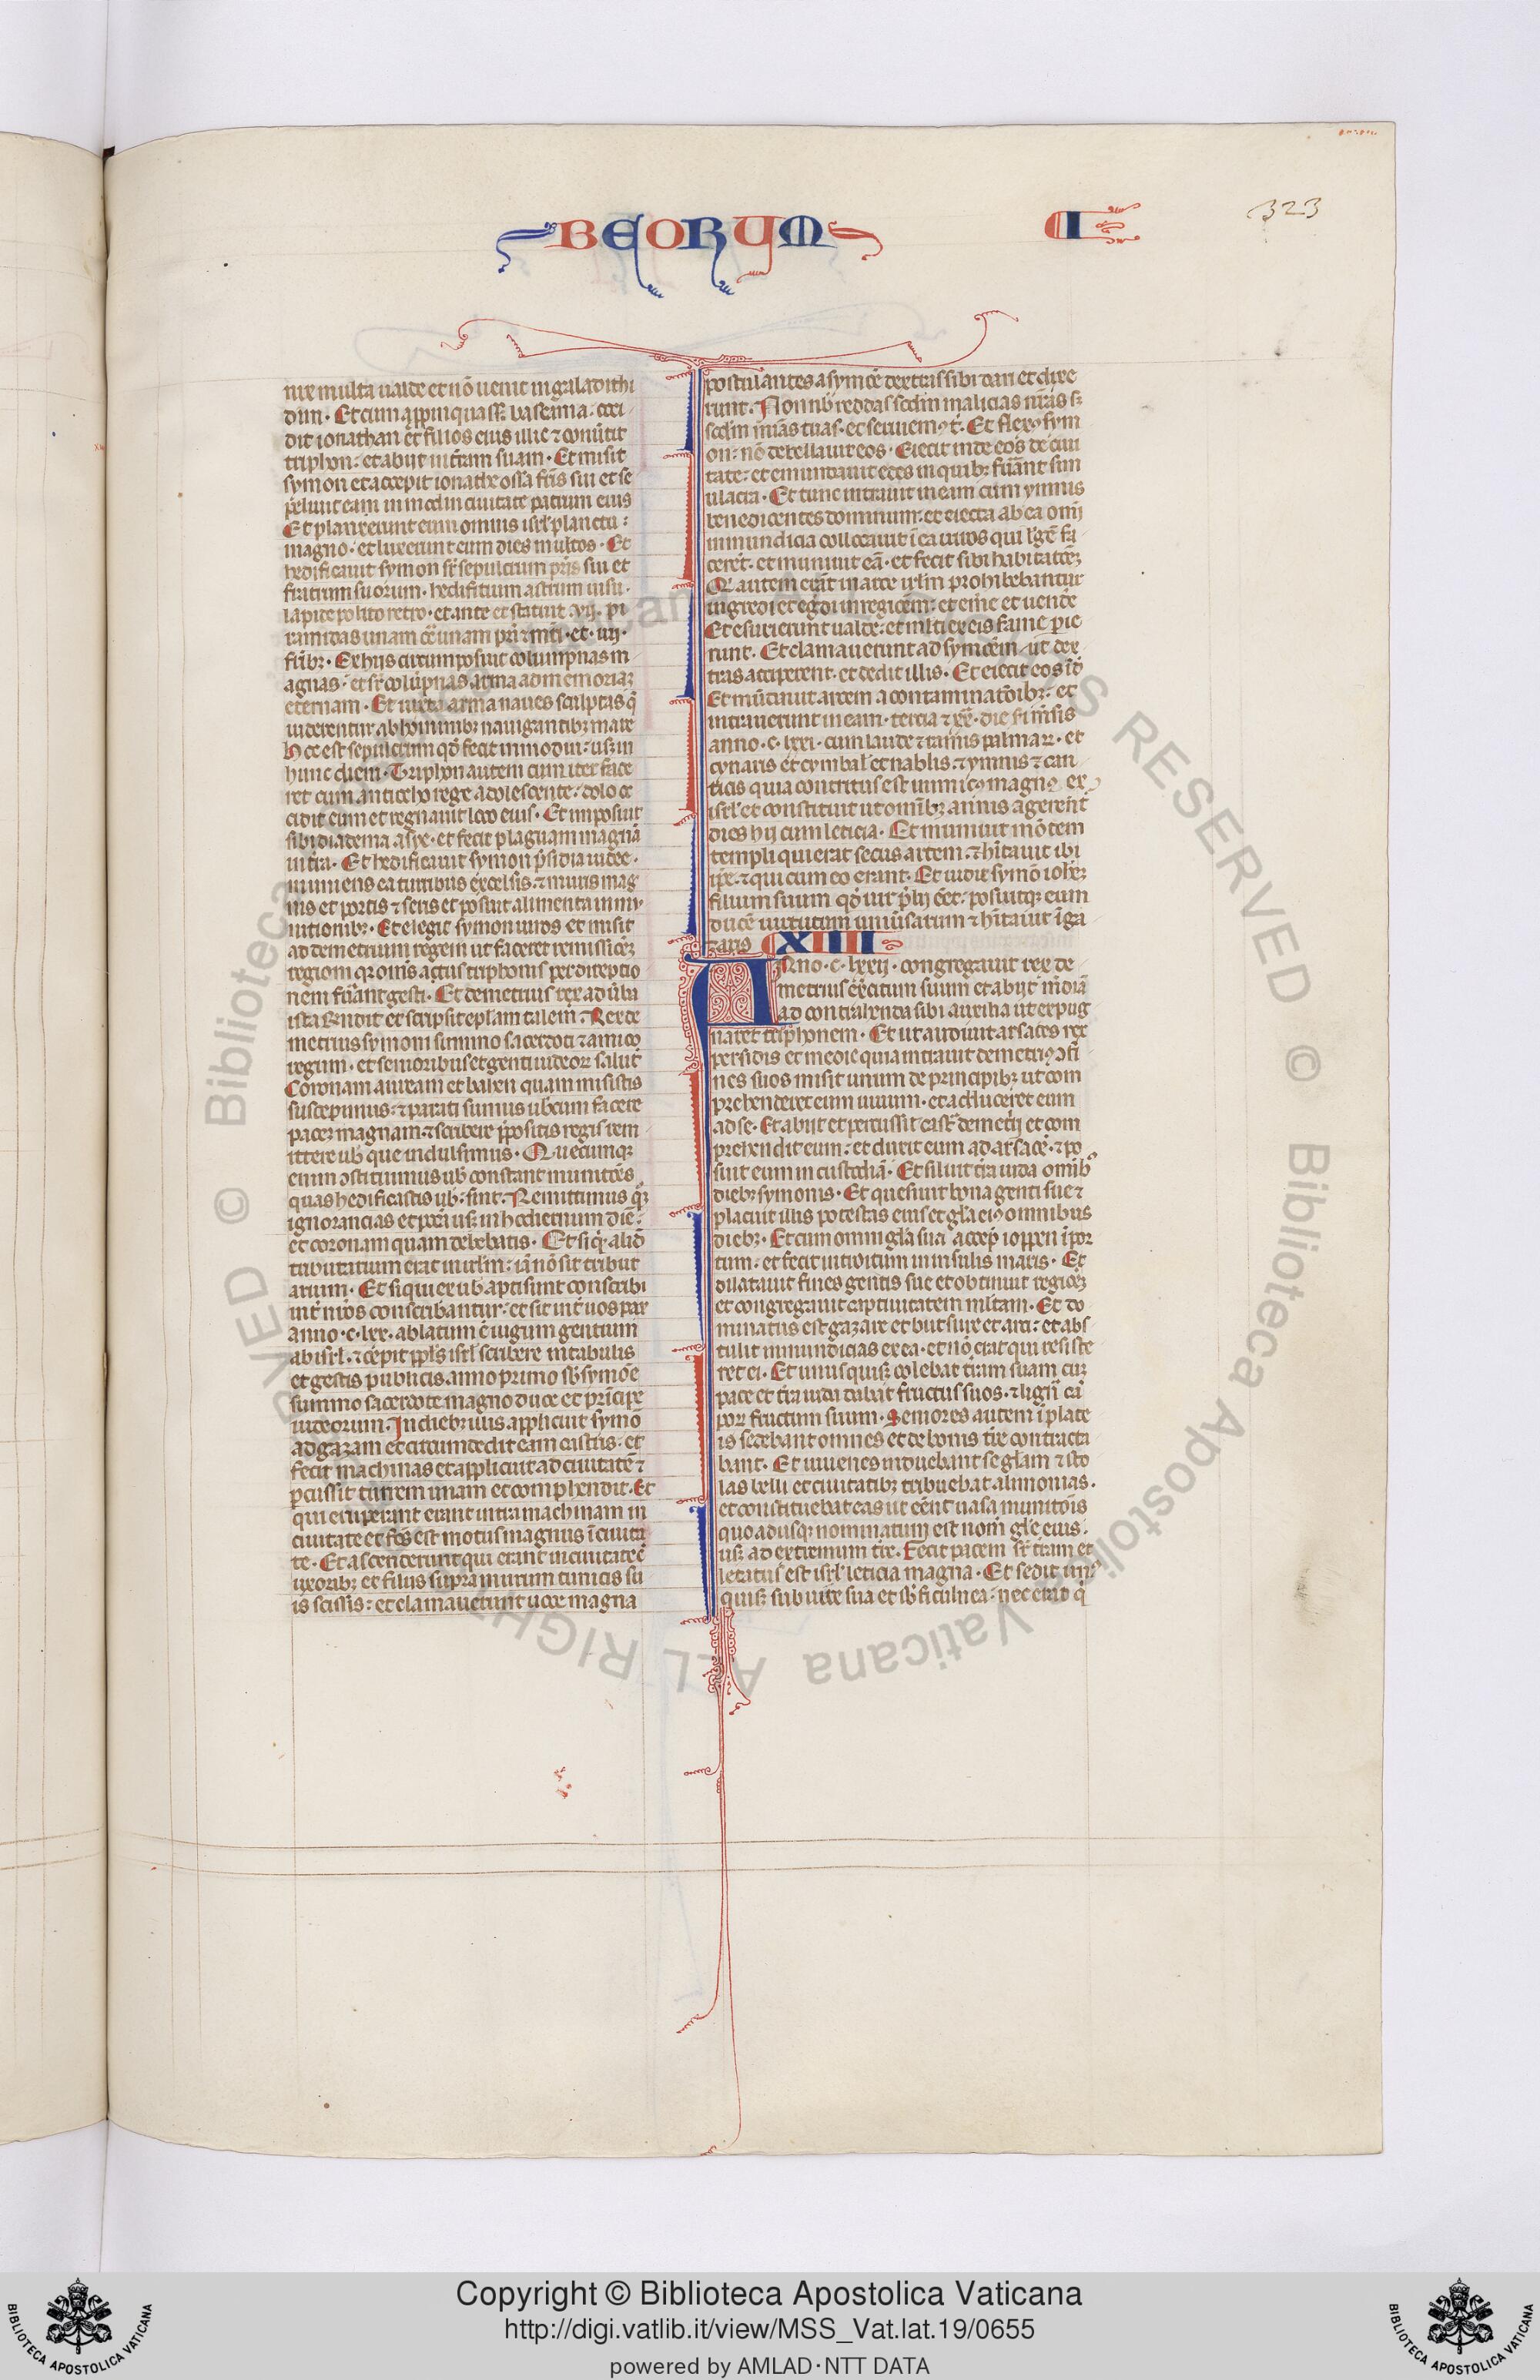 BEORUM
I
323
nix multa ualde et nō uenit in galadithi
dim. Et cum appinquass& baschma: occi
dit ionathan et filios eius illic ⁊ conůtit
triphon: et abijt in t̄ram suam. Et misit
symon et accepit ionathe ossa frīs sui et se
peliuit eam in modin ciuitate patrum eius
Et planxerunt eum omnis isrl' planctu:
magno: et luxerunt eum dies multos. Et
hedificauit symon sr̄ sepulcrum pr̄is sui et
fratrum suorum. hedificium altum uisu.
lapite polito retro. et ante et statuit .vij. pi
ramidas unam cō̄ unam pr̄i ⁊ mr̄i. et .iiij.
fr̄ibꝫ. Et hijs circumposuit columpnas m
agnas: et sr̄ colūpnas arma ad memoriaꝫ
eternam. Et iuxta arma naues sculptas q̄
uiderentur ab hominibꝫ nauigantibꝫ mare
hoc est sepulcrum qd̄ fecit in modin: usꝫ in
hunc diem. Triphon autem cum iter face
ret cum anticoho rege adolescente: dolo oc
cidit eum et regnauit loco eius. Et imposuit
sibi diadema asye. et fecit plagam magnā
in t̄ra. Et hedificauit symon p̄sidia iudee.
muniens ea turribus excelsis. ⁊ muris mag
nis et portis ⁊ seris et posuit alimenta in mu
nitionibꝫ. Et elegit symon uiros et misit
ad demetrium regem ut faceret remissiōeꝫ
regioni qꝛ om̄is actus triphonis per direptio
nem fu̇ant gesti. Et demetrius rex ad ůba
ista rn̄dit et scripsit ep̄lam talem: Rex de
metrius symoni summo sacerdoti ⁊ amico
regum. et senioribus et genti iudeoꝝ salutē
Coronam auream et bahen quam misistis
suscepimus. ⁊ parati sumus uobcum facere
pacem magnam. ⁊ scribere p̄positis regis rem
ittere uob̄ que indulsimus. Quecumqꝫ
enim ↄstituimus uob̄ constant munitōes
quas hedificastis uob̄: sint. Remittimus qꝫ
ignorancias et pcc̄a usꝫ in hodiernum diē:
et coronam quam debebatis. Et si qd̄ aliud
tributarium erat in irl̄m: iā nō sit tribut
arium. Et si qui ex uob̄ apti sunt conscribi
int̄ nr̄os conscribantur. et sit int̄ nos pax
anno .c.lxx. ablatum ē iugum gentium
ab isrl'. ⁊ cepit ppl̄s isrl' scribere in tabulis
et gestis publicis. anno primo sb̄ symōe
summo sacerdote magno duce et principe
iudeorum. In diebꝫ illis applicuit symō
ad gazam et circumdedit eam castris. et
fecit machinas et applicuit ad ciuitatē ⁊
ꝑcussit turrem unam et comprehendit. Et
qui eruperant erant intra machinam in
ciuitate et fc̄s est motus magnus ī ciuita
te. Et ascenderunt qui erant in ciuitate c̄
uxoribꝫ et filijs supra murum tunicis su
is scissis: et clamauerunt uoce magna
postulantes a symōe dextras sibi dari et dixe
runt. Non nob̄ reddas scd̄m malicias nr̄as sꝫ
scd̄m mīas tuas. et seruiemꝰ t̄. Et flexꝰ sym
on: nō debellauit eos. Eiecit inde eos de ciui
tate: et emundauit edes in quibꝫ fu̇ant sim
ulacra. Et tunc intrauit in eam cum ymnis
benedicentes dominum. et eiecta ab ea omī
immundicia collocauit ī ea uiros qui legē fa
cerēt. et muniuit eā. et fecit sibi habitatōeꝫ
Qi autem erāt in arce irl̄m prohibebantur
ingredi et egdi in regiōem: et em̄e et uendē
Et esurierunt ualde: et ml̄ti ex eis fame perie
runt. Et clamauerunt ad symōem ut dex
tras acciperent. et dedit illis. Et eiecit eos īd̄
Et mūdauit arcem a contaminatōibꝫ. et
intrauerunt in eam. tercia ⁊ xx. die sci m̄sis
anno .c.lxxi. cum laude ⁊ ramis palmaꝝ. et
cynaris et cymbal' et nablis. ⁊ ymnis ⁊ can
ticis quia contritus est inimicꝰ magnꝰ ex
isrl' et constituit ut om̄ibꝫ annis agerent
dies hij cum leticia. Et muniuit mōtem
templi qui erat secus arcem. ⁊ hitauit ibi
ip̄e. ⁊ qui cum eo erant. Et uidit symō ioheꝫ
filium suum qd̄ uir p̄lij eēt: posuitqꝫ eum
ducē uirtutum uniůsarum ⁊ hitauit ī ga
zaris XIIII
Anno .c.lxxij. congregauit rex de
metrius exercitum suum et abijt mediā
ad contrahenda sibi auxilia ut expug
naret triphonem. Et ut audiuit arsaces rex
persidis et medie quia intrauit demetriꝰ ↄfi
nes suos misit unum de principibꝫ ut com
prehenderet eum uiuum. et adduceret eum
ad se. Et abijt et percussit cast̄ demetrij et com
prehendit eum: et duxit eum ad arsacē. ⁊ po
suit eum in custodiā. Et siluit t̄ra iuda omībꝫ
diebꝫ symonis. Et quesiuit bona genti sue ⁊
placuit illis potestas eius et gl̄a eiꝰ omnibus
diebꝫ. Et cum omni gl̄a sua accep̄ ioppen ī por
tum: et fecit introitum in insulis maris. Et
dilatauit fines gentis sue et obtinuit regiōeꝫ
et congregauit captiuitatem ml̄tam. Et do
minatus est gazare et bethsure et arci: et abs
tulit immundicias ex ea. et nō erat qui resiste
ret ei. Et unusquisqꝫ colebat t̄ram suam cū
pace et t̄ra iuda dabat fructus suos. ⁊ lignū cā
poꝝ fructum suum. Seniores autem ī plate
is sedebant omnes et de bonis t̄re contracta
bant. Et iuuenes induebant se gl̄am ⁊ sto
las belli et ciuitatibꝫ tribuebat alimonias.
et constituebat eas ut eēnt uasa munitōis
quoadusqꝫ nominatum est nom̄ gl̄e eius.
usqꝫ ad extremum t̄re. Fecit pacem sr̄ t̄ram et
letatus est isrl' leticia magna. Et sedit unꝰ
quisqꝫ sub uite sua et sb̄ ficulnea. nec erat q̄
Copyright © Biblioteca Apostolica Vaticana
http://digi.vatlib.it/view/MSS_Vat.lat.19/0655
powered by AMLAD·NTT DATA
BIBLIOTECA APOSTOLICA VATICANA
BIBLIOTECA APOSTOLICA VATICANA